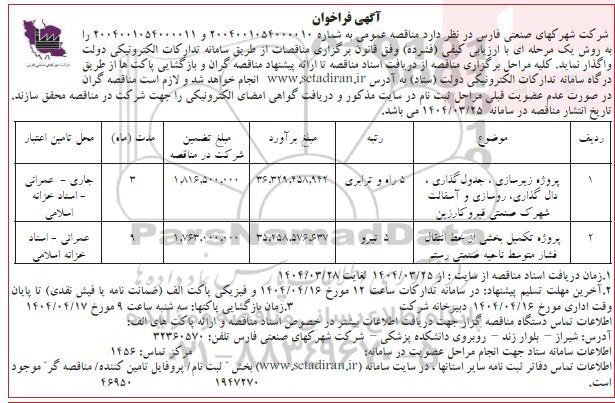 آگهی فراخوان
شرکت شهرکهای صنعتی فارس در نظر دارد مناقصه عمومی به شماره ۲۰۰۴۰۰۱۰۵۴۰۰۰۰۱۰ و ۲۰۰۴۰۰۱۰۵۴۰۰۰۰۱۱ را
به روش یک مرحله ای با ارزیابی کیفی (فشرده) وفق قانون برگزاری مناقصات از طریق سامانه تدارکات الکترونیکی دولت
واگذار نماید. کلیه مراحل برگزاری مناقصه از دریافت اسناد مناقصه تا ارائه پیشنهاد مناقصه گران و بازگشایی پاکت ها از طریق
درگاه سامانه تدارکات الکترونیکی دولت (ستاد) به آدرس www.setadiran.ir انجام خواهد شد و لازم است مناقصه گران
در صورت عدم عضویت قبلی مراحل ثبت نام در سایت مذکور و دریافت گواهی امضای الکترونیکی را جهت شرکت در مناقصه محقق سازند.
تاریخ انتشار مناقصه در سامانه ۱۴۰۴/۰۳/۲۵ می باشد.
ردیف موضوع رتبه مبلغ برآورد مبلغ تضمین شرکت در مناقصه مدت (ماه) محل تامین اعتبار
۱ پروژه زیرسازی ، جدول‌گذاری ، دال گذاری، روسازی و آسفالت شهرک صنعتی قیروکارزین ۵ راه و ترابری ۳۶,۳۲۹,۴۵۸,۹۴۲ ۱,۸۱۶,۵۰۰,۰۰۰ ۳ جاری - عمرانی - اسناد خزانه اسلامی
۲ پروژه تکمیل بخشی از خط انتقال فشار متوسط ناحیه صنعتی رستم ۵ نیرو ۳۵,۲۵۸,۵۷۶,۶۳۷ ۱,۷۶۳,۰۰۰,۰۰۰ ۹ عمرانی - اسناد خزانه اسلامی
۱.زمان دریافت اسناد مناقصه از سایت : از ۱۴۰۴/۰۳/۲۵ لغایت ۱۴۰۴/۰۳/۲۸
۲.آخرین مهلت تسلیم پیشنهاد: در سامانه تدارکات ساعت ۱۲ مورخ ۱۴۰۴/۰۴/۱۶ و فیزیکی پاکت الف (ضمانت نامه یا فیش نقدی) تا پایان
وقت اداری مورخ ۱۴۰۴/۰۴/۱۶ دبیرخانه شرکت ۳.زمان بازگشایی پاکتها: سه شنبه ساعت ۹ مورخ ۱۴۰۴/۰۴/۱۷
اطلاعات تماس دستگاه مناقصه گزار جهت دریافت اطلاعات بیشتر در خصوص اسناد مناقصه و ارائه پاکت های الف:
آدرس: شیراز – بلوار زند – روبروی دانشکده پزشکی – شرکت شهرکهای صنعتی فارس تلفن: ۳۲۳۶۰۵۷۰
اطلاعات سامانه ستاد جهت انجام مراحل عضویت در سامانه: مرکز تماس: ۱۴۵۶
اطلاعات تماس دفاتر ثبت نامه سایر استانها ، در سایت سامانه (www.setadiran.ir) بخش " ثبت نام / پروفایل تامین کننده/ مناقصه گر" موجود
است ۱۹۴۷۲۷۰ ۴۶۹۵۰